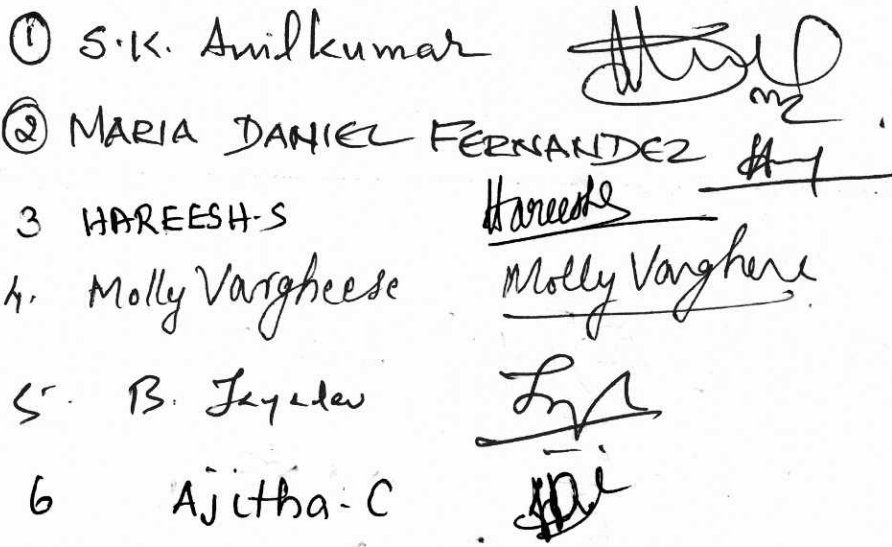 ① S.K. Anilkumar
② MARIA DANIEL FERNANDEZ
3 HAREESH.S Hareeshs
4. Molly Vargheese Molly Varghese
5. B. Jayadev
6 Ajitha.C